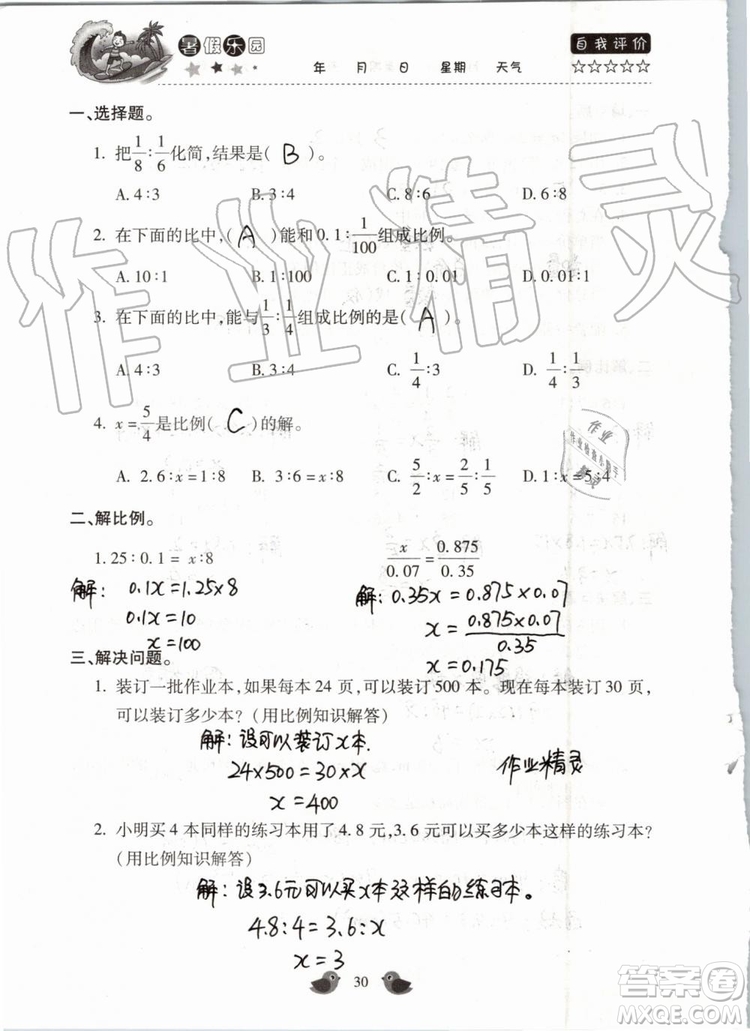 暑假乐园
自我评价
年 月 日 星期 天气
☆☆☆☆☆
一、选择题。
1. 把1/8∶1/6化简,结果是( B )。
A. 4∶3 B. 3∶4 C. 8∶6 D. 6∶8
2. 在下面的比中,( A )能和0.1∶1/100组成比例。
A. 10∶1 B. 1∶100 C. 1∶0.01 D. 0.01∶1
3. 在下面的比中,能与1/3∶1/4组成比例的是( A )。
A. 4∶3 B. 3∶4 C. 1/4∶3 D. 1/4∶1/3
4. x=5/4是比例( C )的解。
A. 2.6∶x=1∶8 B. 3∶6=x∶8 C. 5/2∶x=2/5∶1/5 D. 1∶x=5∶4
二、解比例。
1.25∶0.1=x∶8 x/0.07=0.875/0.35
解: 0.1x=1.25×8 解: 0.35x=0.875×0.07
0.1x=10 x=0.875×0.07/0.35
x=100 x=0.175
三、解决问题。
1. 装订一批作业本,如果每本24页,可以装订500本。现在每本装订30页,
可以装订多少本?(用比例知识解答)
解:设可以装订x本.
24×500=30×x 作业精灵
x=400
2. 小明买4本同样的练习本用了4.8元,3.6元可以买多少本这样的练习本?
(用比例知识解答)
解:设3.6元可以买x本这样的练习本。
4.8:4=3.6:x
x=3
30
作业精灵
作业
答案圈
MXQE.COM